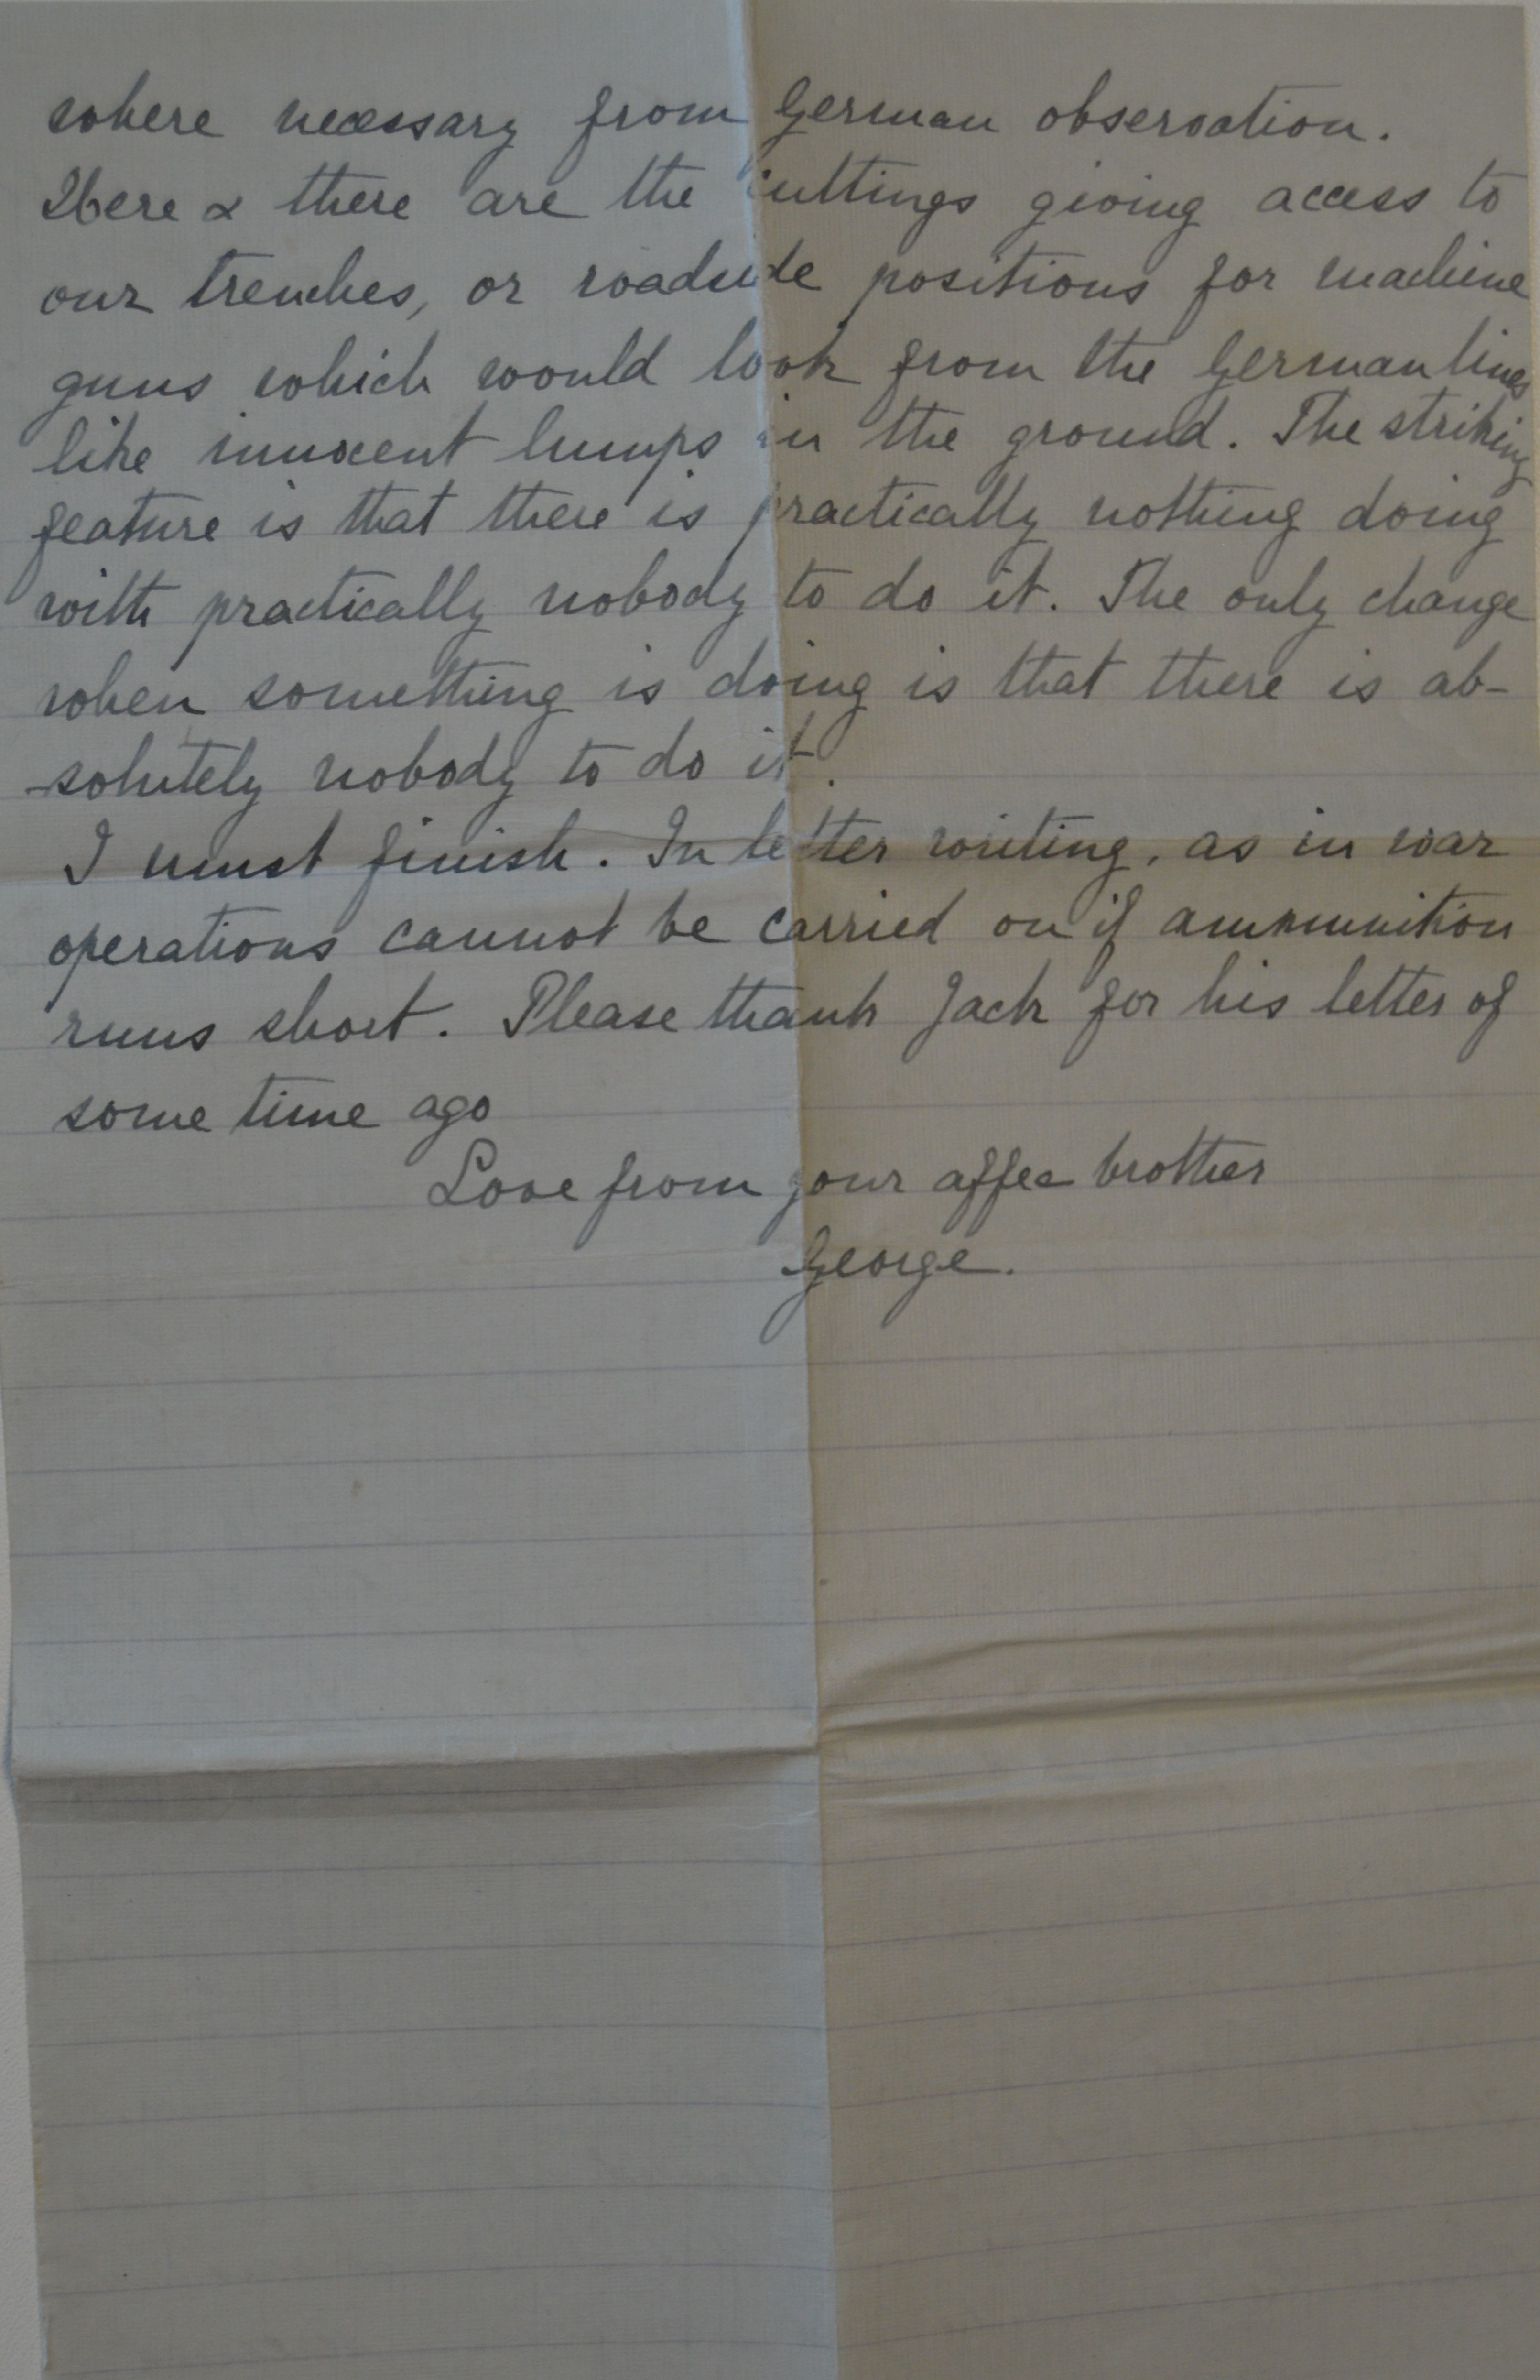 where necessary from German observation.
Here & there are the cuttings giving access to
our trenches, or roadside positions for machine
guns which would look from the German lines
like innocent lumps in the ground. The striking
feature is that there is practically nothing doing
with practically nobody to do it. The only change
when something is doing is that there is ab-
-solutely nobody to do it.
I must finish. In letter writing, as in war
operations cannot be carried on if ammunition
runs short. Please thank Jack for his letter of
some time ago
Love from your affec brother
George.